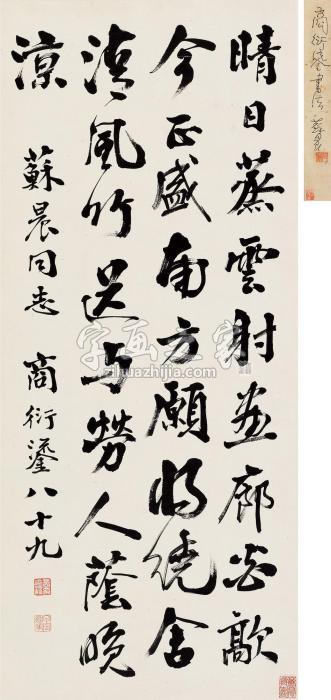 晴日蒸雲射畫廊炎歊
今正盛南方願將繞舍
清風竹送与勞人蔭晚
涼
蘇晨同志 商衍鎏八十九
商衍鎏書法
字画之家
zihuazhijia.com